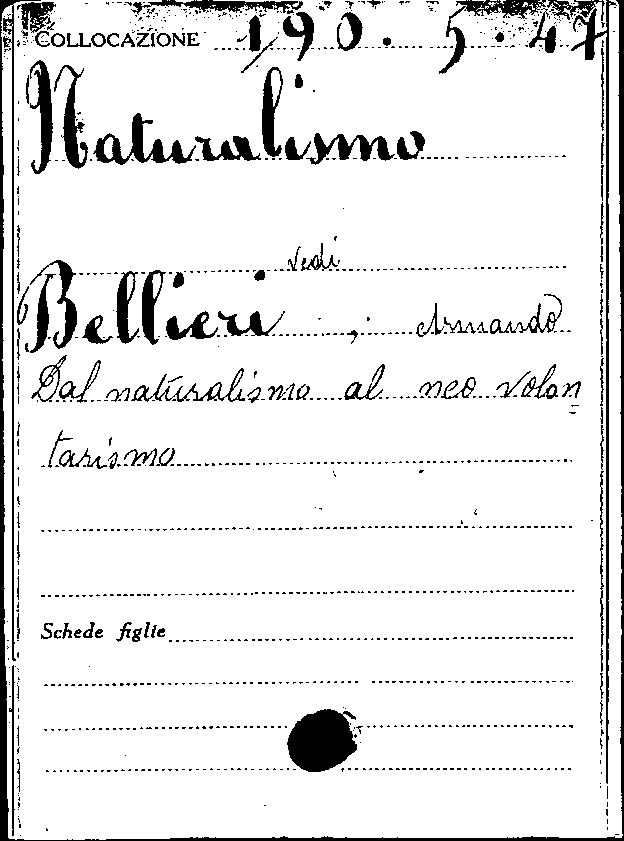 COLLOCAZIONE 190. 5. 47
Naturalismo
vedi
Bellieri, Armando
Dal naturalismo al neo volon=
tarismo
Schede figlie